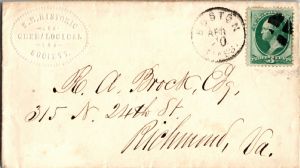 N.E. HISTORIC
GENEALOGICAL
SOCIETY.
BOSTON
APR
MASS.
R. A. Brock, Esq,
315 N. 24th St.
Richmond, Va.